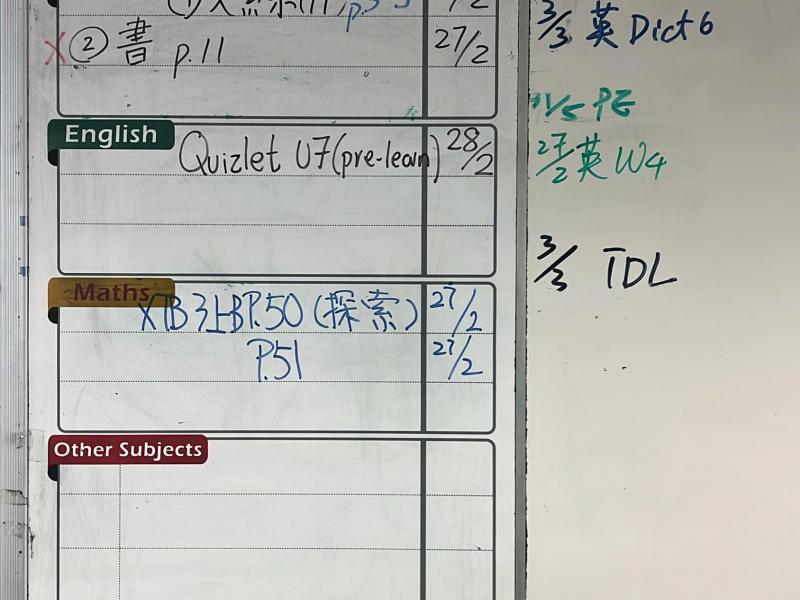 ② 書 p.11 27/2
English
Quizlet U7 (pre-learn) 28/2
Maths
XTB 3上B P.50 (探索) 27/2
P.51 27/2
Other Subjects
3/3 英 Dict 6
PE
27/2 英 W4
3/3 TDL